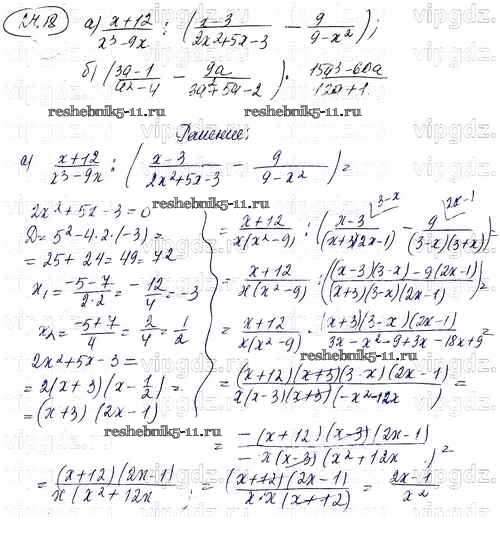 24.18 а) (x+12)/(x³-9x) : ((x-3)/(2x²+5x-3) - 9/(9-x²));
б) ((3a-1)/(a²-4) - 9a/(3a²+5a-2)) · (15a³-60a)/(12a+1).
reshebnik5-11.ru reshebnik5-11.ru
Решение:
а) (x+12)/(x³-9x) : ((x-3)/(2x²+5x-3) - 9/(9-x²)) =
reshebnik5-11.ru
2x²+5x-3=0
D=5²-4·2·(-3)=
=25+24=49=7²
x₁=(-5-7)/(2·2)=-12/4=-3
x₂=(-5+7)/4=2/4=1/2
2x²+5x-3=
=2(x+3)(x-1/2)=
=(x+3)(2x-1)
3-x 2x-1
=(x+12)/(x(x²-9)) : ((x-3)/((x+3)(2x-1)) - 9/((3-x)(3+x)))=
=(x+12)/(x(x²-9)) : (((x-3)(3-x)-9(2x-1))/((x+3)(3-x)(2x-1)))=
=(x+12)/(x(x²-9)) · ((x+3)(3-x)(2x-1))/(3x-x²-9+3x-18x+9)=
reshebnik5-11.ru
=((x+12)(x+3)(3-x)(2x-1))/(x(x-3)(x+3)(-x²-12x))=
reshebnik5-11.ru
=(-(x+12)(x-3)(2x-1))/(-x(x-3)(x²+12x))=
=((x+12)(2x-1))/(x(x²+12x) = ((x+12)(2x-1))/(x·x(x+12)) = (2x-1)/x²
reshebnik5-11.ru
vipgdz.com